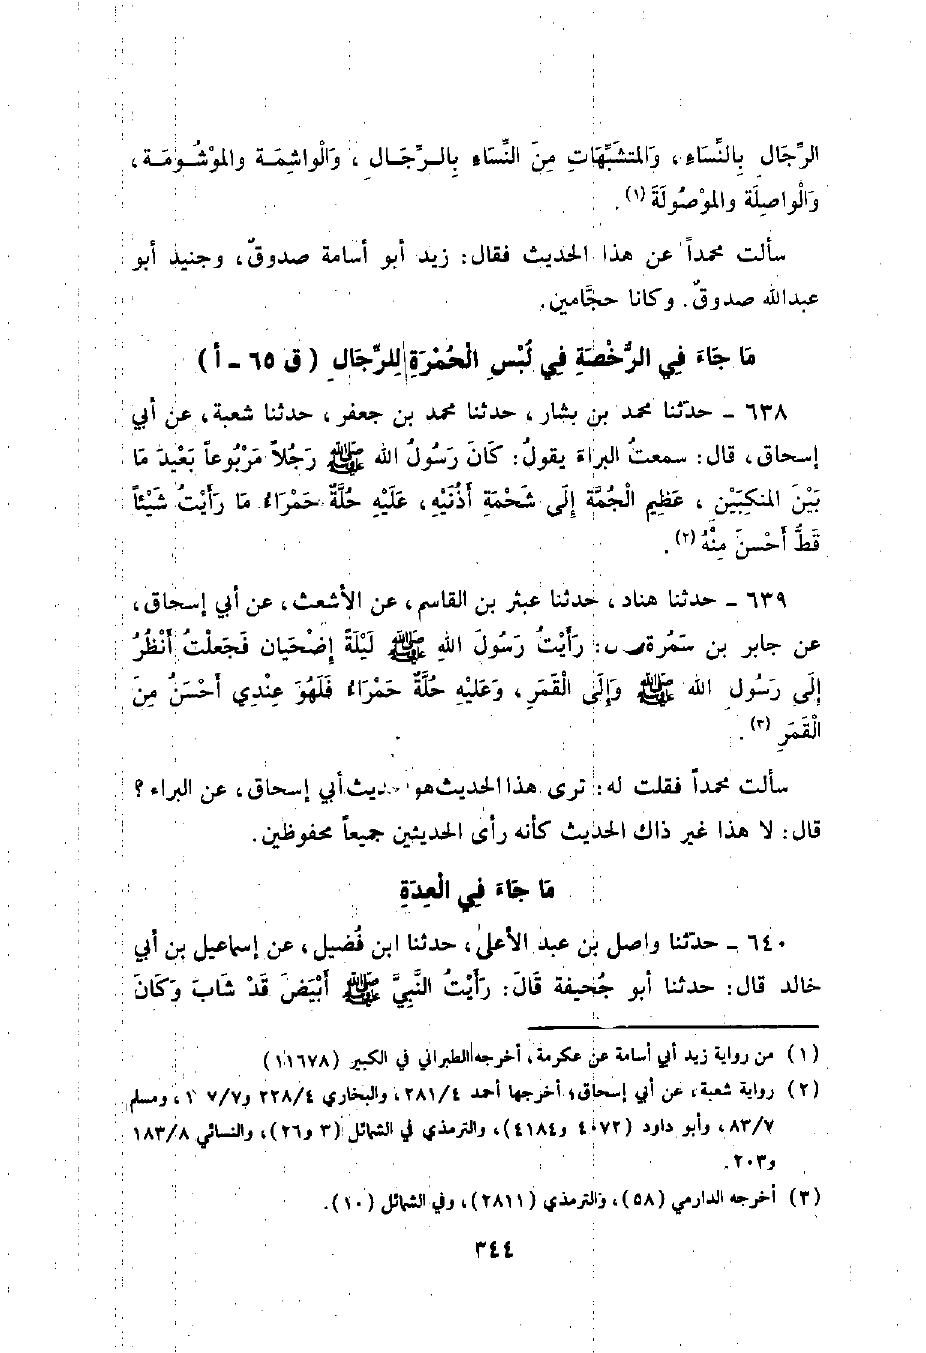 الرِّجَالِ بِالنِّسَاءِ، وَالمتشَبِّهَاتِ مِنَ النِّسَاءِ بِالـرِّجَـالِ، وَالْواشِمَـة والموْشُـومَـة،
وَالْواصِلَة والموْصُولَةَ (١).
سألت محمداً عن هذا الحديث فقال: زيد أبو أسامة صدوقٌ، وجنيد أبو
عبدالله صدوقٌ. وكانا حجَّامين.
مَا جَاءَ فِي الرُّخْصَةِ فِي لُبْسِ الْحُمْرَةِ لِلرِّجَالِ (ق ٦٥ - أ)
٦٣٨ - حدّثنا محمد بن بشار، حدثنا محمد بن جعفر، حدثنا شعبة، عن أبي
إسحاق، قال: سمعتُ البراءَ يقولُ: كَانَ رَسُولُ الله ﷺ رَجُلاً مَرْبُوعاً بَعْيدَ مَا
بَيْنَ المنكِبَيْنِ، عَظِيم الْجُمَّة إِلَى شَحْمَةِ أَذُنَيْهِ، عَلَيْهِ حُلَّةٌ حَمْرَاءُ مَا رَأَيْتُ شَيْئاً
قَطُّ أَحْسنَ مِنْهُ (٢).
٦٣٩ - حدثنا هناد، حدثنا عبثر بن القاسم، عن الأشعث، عن أبي إسحاق،
عن جابر بن سَمُرة: رَأَيْتُ رَسُولَ اللهِ ﷺ لَيْلَةً إضْحَيَان فَجَعَلْتُ أَنْظُرُ
إِلَى رَسُولِ الله ﷺ وَإِلَى الْقَمَرِ، وَعَلَيْهِ حُلَّةٌ حَمْرَاءُ فَلَهُوَ عِنْدِي أَحْسَنُ مِنَ
الْقَمَرِ (٣).
سألت محمداً فقلت له: ترى هذا الحديث هو حديث أبي إسحاق، عن البراء؟
قال: لا هذا غير ذاك الحديث كأنه رأى الحديثين جميعاً محفوظين.
مَا جَاءَ فِي الْعِدَةِ
٦٤٠ - حدّثنا واصل بن عبد الأعلى، حدثنا ابن فُضيل، عن إسماعيل بن أبي
خالد قال: حدثنا أبو جُحيفة قَالَ: رَأَيْتُ النَّبِيَّ ﷺ أَبْيَضَ قَدْ شَابَ وَكَانَ
(١) من رواية زيد أبي أسامة عن عكرمة، أخرجه الطبراني في الكبير (١١٦٧٨)
(٢) رواية شعبة، عن أبي إسحاق؛ أخرجها أحمد ٢٨١/٤، والبخاري ٢٢٨/٤ و٧/٧ ١، ومسلم
٨٣/٧، وأبو داود (٤٠٧٢ و٤١٨٤)، والترمذي في الشمائل (٣ و٢٦)، والنسائي ١٨٣/٨
و٢٠٣.
(٣) أخرجه الدارمي (٥٨)، والترمذي (٢٨١١)، وفي الشمائل (١٠).
٣٤٤